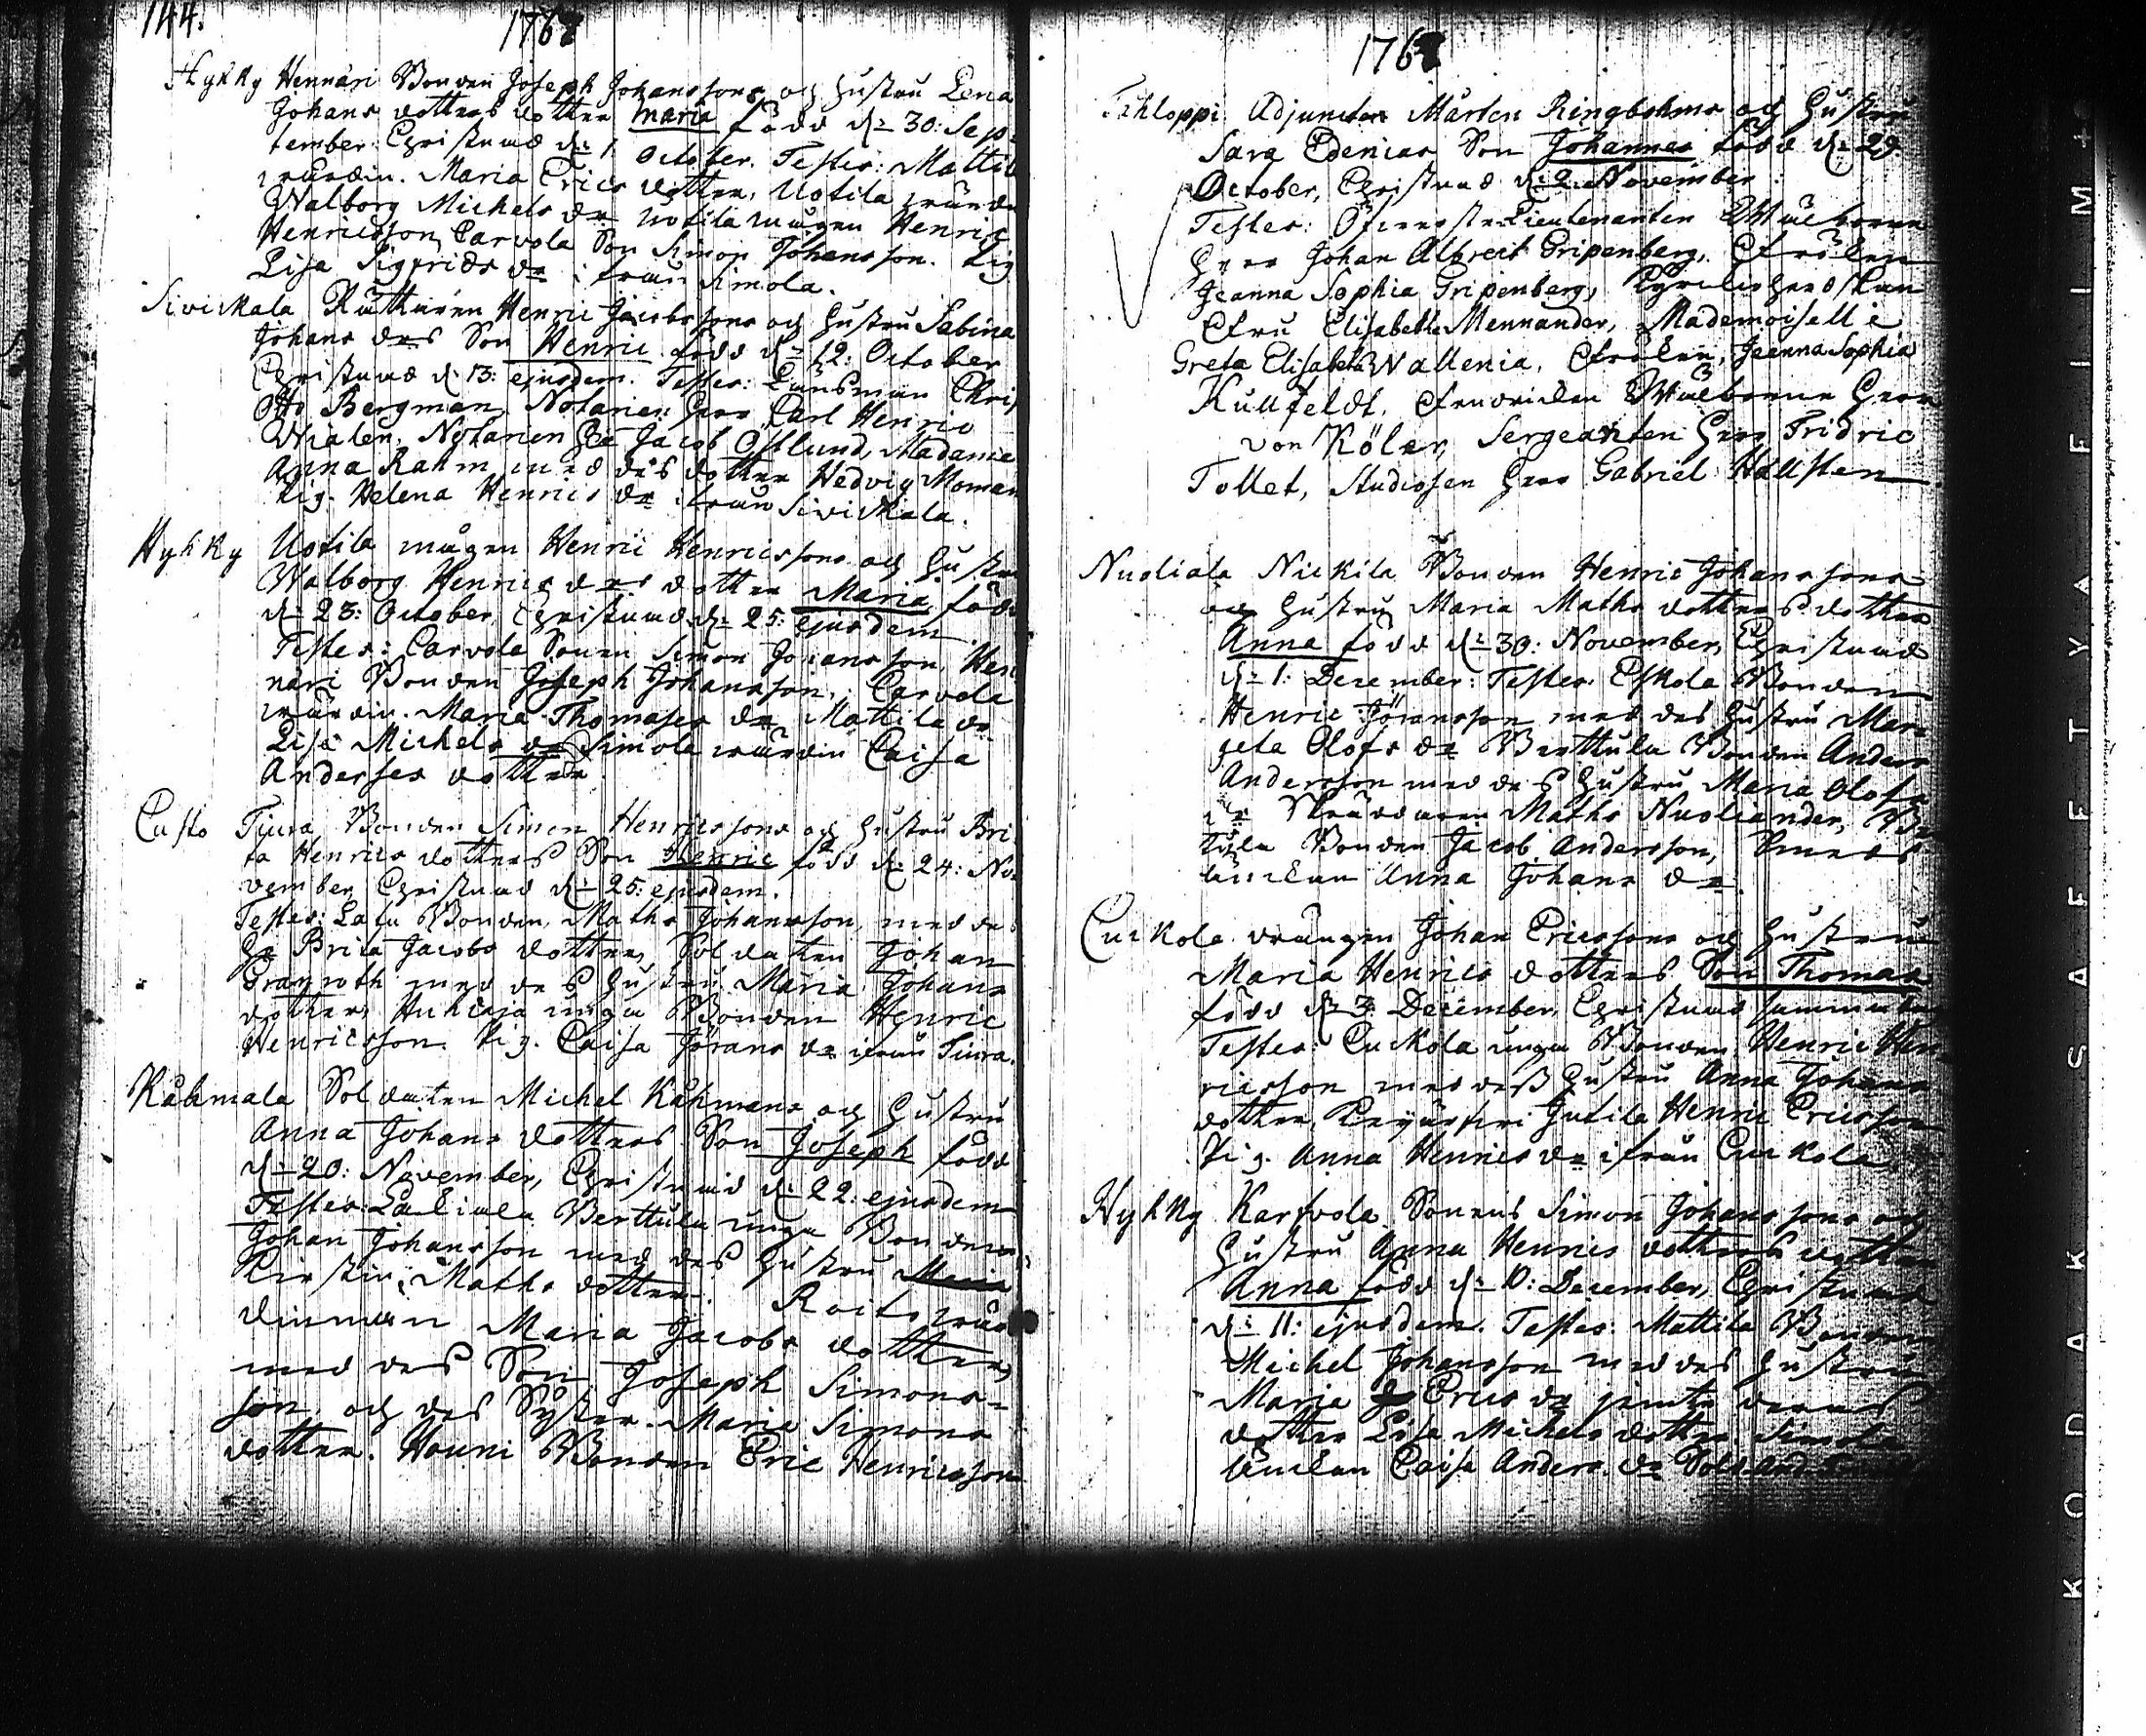 144.
1767
Hykky Hennari Bonden Joseph Johanssons och hustru Lena
Johans dotters dotter Maria född d: 30: Sep-
tember Christnad d: 1 October. Testes: Mattila
värdin. Maria Erics dotter, Uotila
Walborg Michels dr Uotila mågen Henric
Henricsson, Carvola Son Simon Johansson. Pig.
Lisa Sigfrids dr ifrån Simola.
Siviskala Henric Jacobssons och hustru Sabina
Johans drs Son Henric född d: 12: October
Christnad d: 13: ejusdem. Testes: Länsman Chri
Otto Bergman, Notarien Herr Carl Henric
Wialen, Notarien Hr Jacob Östlund, Madame
Anna Rahm med des dotter Hedvig Moman
Pig. Helena Henrics dr ifrån Siviskala.
Hykky Uotila mågen Henric Henricssons och hustru
Walborg Henrics drs dotter Maria född
d: 23: October, Christnad d: 25: ejusdem
Testes: Carvola Sonen Simon Johansson, Hen
nari Bonden Joseph Johansson, Carvola
värdin. Maria Thomases dr Mattila dr
Lisa Michels dr Simola värdin Caisa
Anderses dotter
Custo Tiura Bonden Simon Henricssons och hustru Bri
ta Henrics dotters Son Henric född d: 24: No
vember, Christnad d: 25: ejusdem.
Testes: Latu Bonden, Maths Johansson, med des
H Brita Jacobs dotter, Soldaten Johan
Granroth med des hustru Maria Johans
dotter, unga Bonden Henric
Henricsson. Pig. Caisa Jörans dr ifrån Tiura.
Kåhmala Soldaten Michel Kåhmans och hustru
Anna Johans dotters Son Joseph född
d: 20: November, Christnad d: 22: ejusdem
Testes: Laliala Berttula unga Bonden
Johan Johansson med des hustru Maria
Kirstin Maths dotter. Roits
Maria Jacobs dotter
med des Son Joseph Simons-
son. och des Syster Maria Simons
dotter. Houni Bonden Eric Henricsson
1767
Adjuncten Mårten Ringbohms och hustru
Sara Edenias Son Johannes född d: 29
October, Christnad d: 2: November
Testes: Öfverste Lieutenanten Wälborne
Herr Johan Albrect Gripenberg, Fröken
Jeanna Sophia Gripenberg, Kyrkioherdskan
Fru Elisabeth Mennander, Mademoiselle
Greta Elisabeth Wallenia, Fröken, Jeanna Sophia
Kullfeldt, Wälborne Herr
von Köler, Sergeanten Herr Fridric
Tollet, Studiosen Herr Gabriel Hallsten
Nuoliala Nickila Bonden Henric Johanssons
och hustru Maria Maths dotters dotter
Anna född d: 30: November, Christnad
d: 1: December: Testes: Eskola Bonden
Henric Göransson med des hustru Mar
geta Olofs dr Berttula Bonden Anders
Andersson med des hustru Maria Olofs
dr Skräddaren Maths Nuoliander, Ber
tula Bonden Jacob Andersson, Smeds
änckan Anna Johans dr
Cuckola drängen Johan Ericssons och hustru
Maria Henrics dotters Son Thomas
född d: 3: December, Christnad samma
Testes: Cuckola unga Bonden Henric Hen
ricsson med dess hustru Anna Johans
dotter, Jutila Henric Ericsson
Pig. Anna Henrics dr ifrån Cuckola
Hykky Karfvola Sonens Simon Johanssons och
hustru Anna Henrics dotters dotter
Anna född d: 10: December, Christnad
d: 11: ejusdem. Testes: Mattila Bonden
Michel Johansson med des hustru
Maria Erics dr jemte deras
dotter Lisa Michels dotter Simola
änckan Caisa Anders dr
KODAK SAFETY A FILM